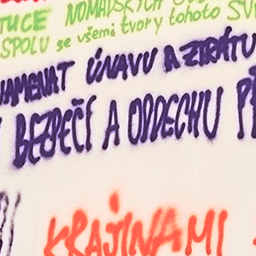 TUCE NOMÁDSKÝCH
SPOLU se všemi tvory tohoto SVĚ
NAMENAT ÚNAVU A ZTRÁTU
BEZPEČÍ A ODDECHU PŘ
KRAJINAMI